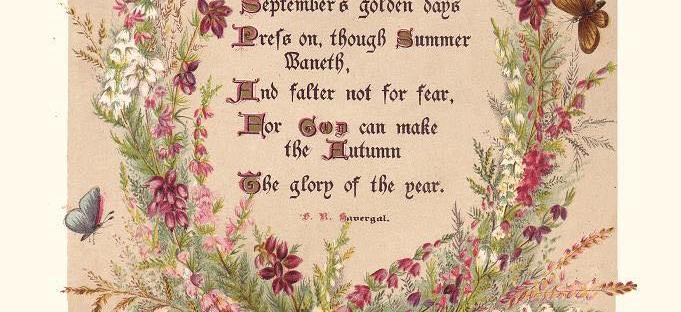 September's golden days
Preſs on, though Summer
Waneth,
And falter not for fear,
For God can make
the Autumn
The glory of the year.
F. R. Havergal.